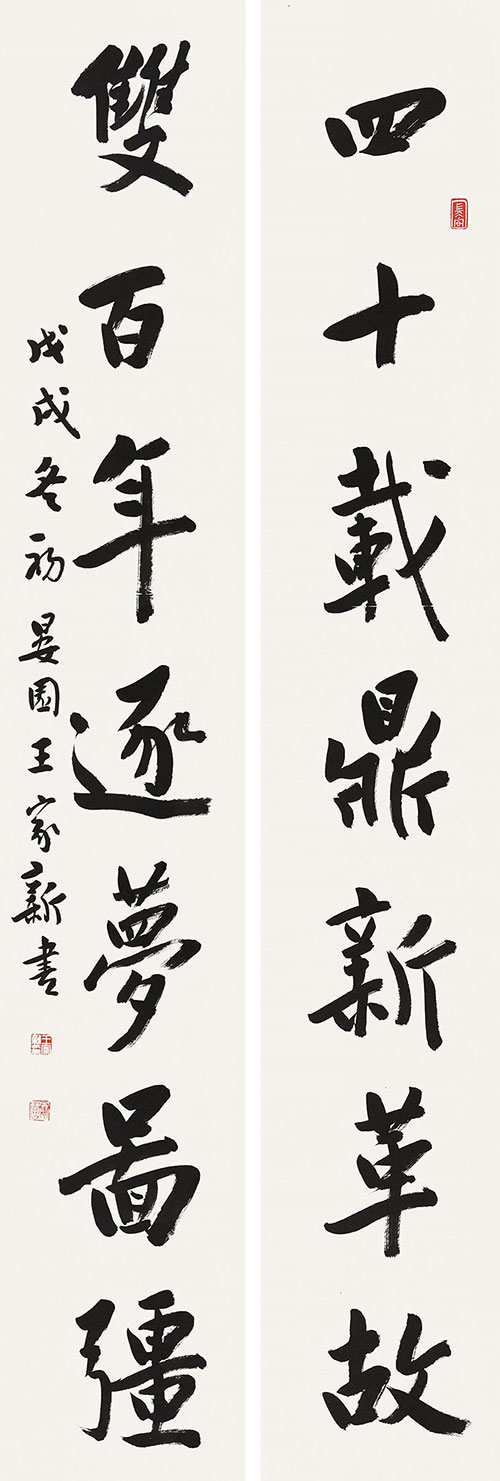 四十載鼎新革故
雙百年逐夢啚彊
戊戌冬初晏園王家新書